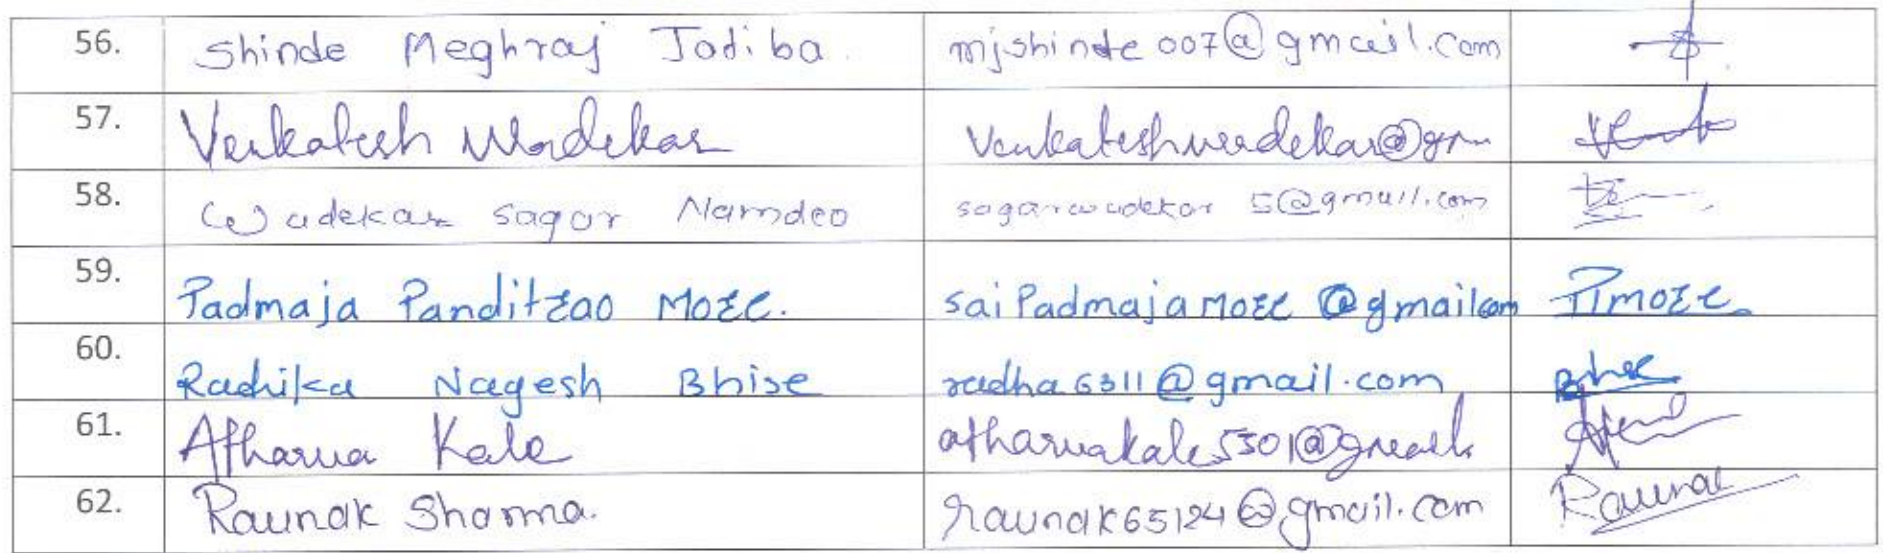 56. Shinde Meghraj Jotiba. mjshinde007@gmail.com
57. Venkatesh Wadekar Venkateshwadekar@gm
58. Wadekar sagar Namdeo sagarwadekar5@gmail.com
59. Padmaja Panditrao More. sai Padmaja More @gmailcom PMore
60. Radhika Nagesh Bhise radha6311@gmail.com Bhise
61. Atharva Kale atharvakale5301@gmail.
62. Raunak Sharma. raunak65124@gmail.com Raunak